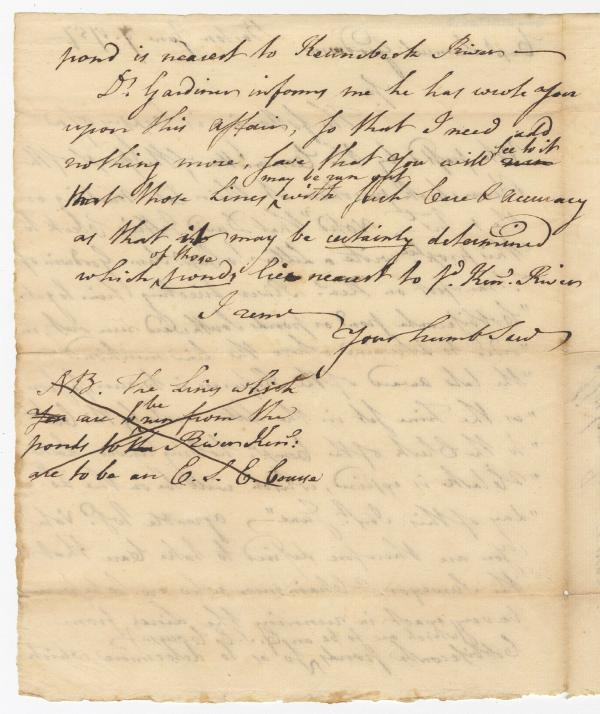 pond is nearest to Kennebeck River —
Dr. Gardiner informs me he has wrote you
upon this affair, so that I need add
nothing more, save that you will see to it
that those Lines may be run out with such Care & accuracy
as that it may be certainly determined
which of those ponds lie nearest to sd. Ken: River
I rem
Your humb Serv
NB. The Lines which
you are to be run from the
ponds to the River Ken:
are to be an E. S. E. Course